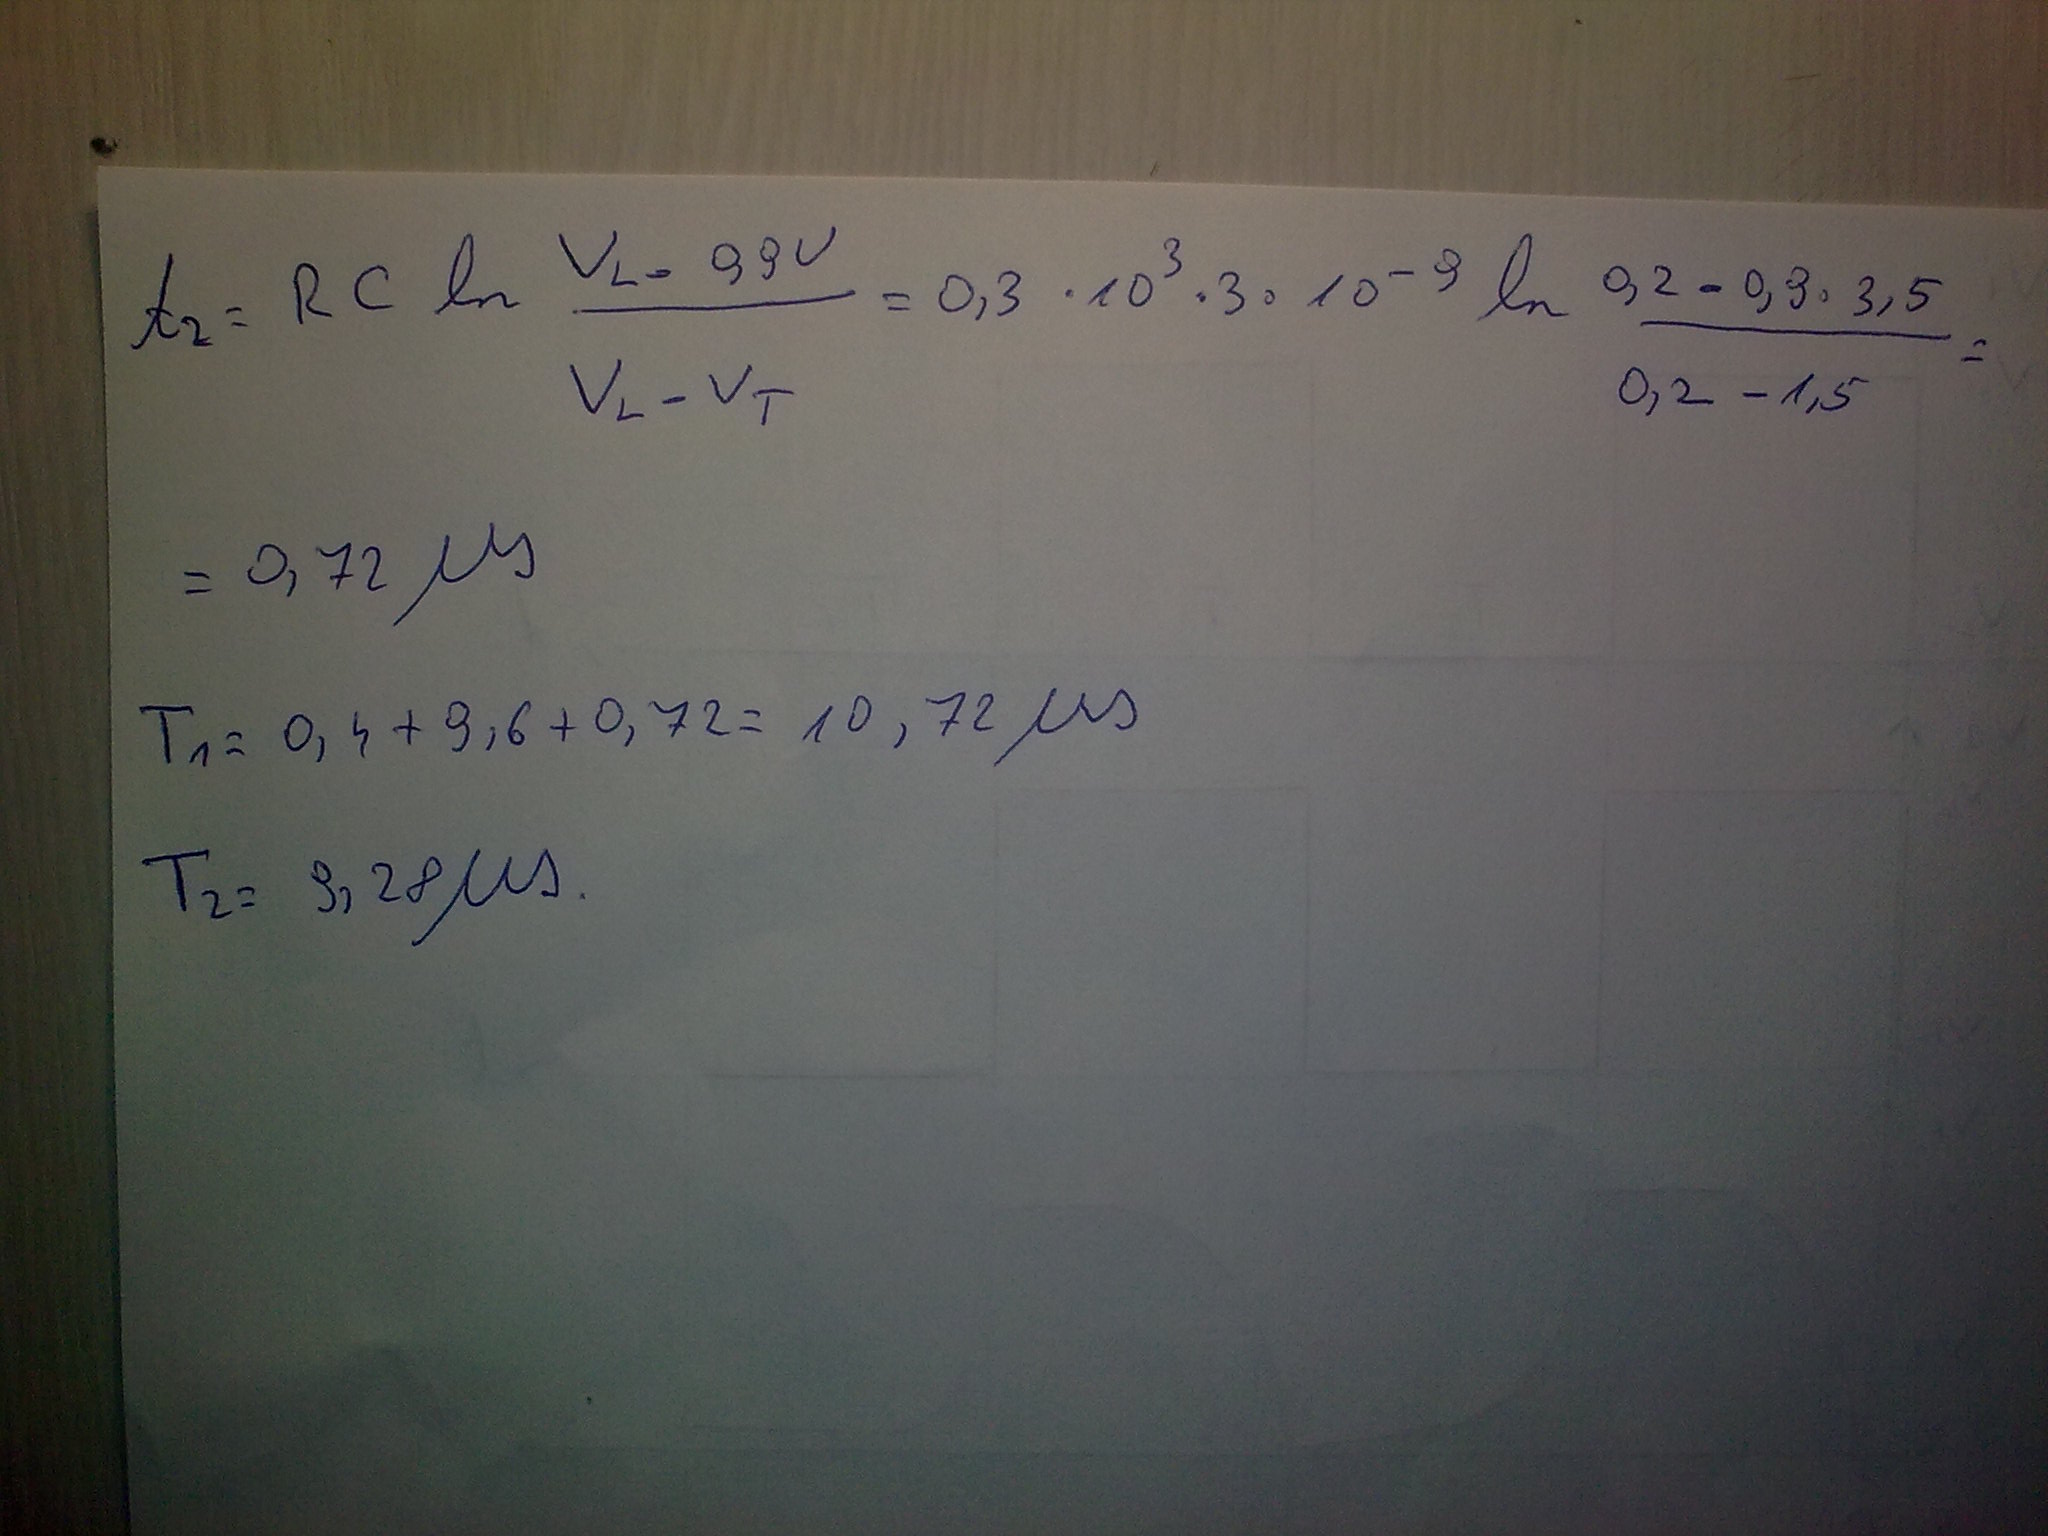 t₂ = RC ln (V_L - 0,9V)/(V_L - V_T) = 0,3 · 10³ · 3 · 10⁻⁹ ln (0,2 - 0,9 · 3,5)/(0,2 - 1,5) =
= 0,72 μs
T₁ = 0,4 + 9,6 + 0,72 = 10,72 μs
T₂ = 9,28 μs.